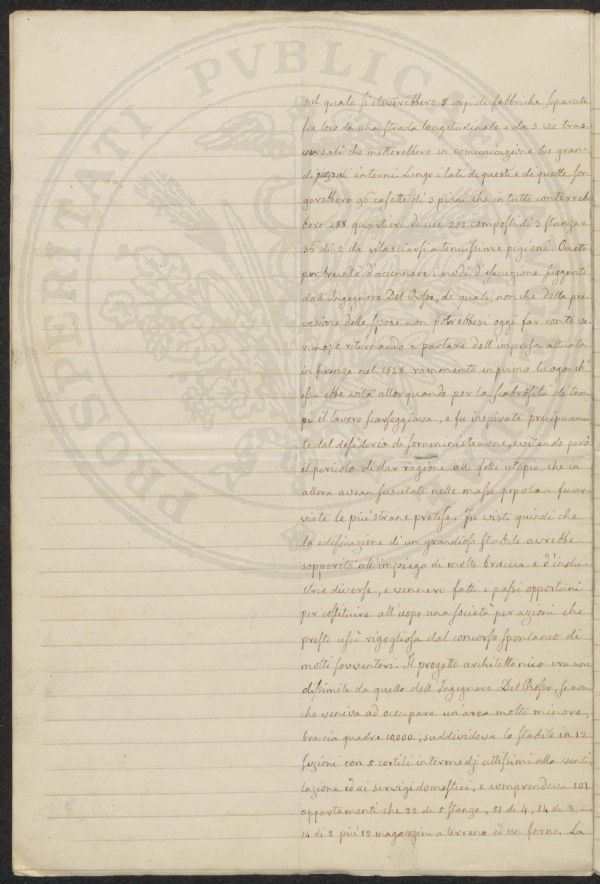 PROSPERITATI PUBLICAE
sul quale si eleverebbero 8 corpi di fabbriche separate
fra loro da una strada longitudinale e da 3 vie tras
versali che metterebbero in comunicazione tre gran
di piazzali interni. Lungo i lati di questi e di quelle sor
gerebbero 96 casette di 3 piani che in tutto conterreb
bero 288 quartieri di cui 252 composti di 3 stanze e
36 di 2 da rilasciarsi a tenuissime pigioni. Ometto
per brevità d'accennare i modi d'esecuzione suggeriti
dall'Ingegnere Del Rosso, de' quali, nonchè della pre
visione delle spese non potrebbesi oggi far conto ve
runo; e ritornando a parlare dell'impresa attuata
in Firenze nel 1848 rammento in primo luogo ch'
essa ebbe vita allorquando per la scabrosità de' tem
pi il lavoro scarseggiava, e fu inspirata precipuamen
te dal desiderio di somministrarne, evitando però
il pericolo di dar ragione alle folli utopie che in
allora avean suscitato nelle masse popolari fuor
viate le più strane pretese. Fu visto quindi che
la edificazione di un grandioso stabile avrebbe
sopperito all'impiego di molte braccia e d'indu
strie diverse, e vennero fatti i passi opportuni
per costituire all'uopo una società per azioni che
presto uscì rigogliosa dal concorso spontaneo di
molti sovventori. Il progetto architettonico era non
dissimile da quello dell'Ingegnere Del Rosso, se non
che veniva ad occupare un'area molto minore,
braccia quadre 10,000., suddivideva lo stabile in 12
sezioni con 5 cortili intermedj attissimi alla venti
lazione ed ai servigi domestici, e comprendeva 101
appartamenti che 22 di 5 stanze, 51 di 4, 14 di 3, e
14 di 2 più 12 magazzini a terreno ed un forno. La